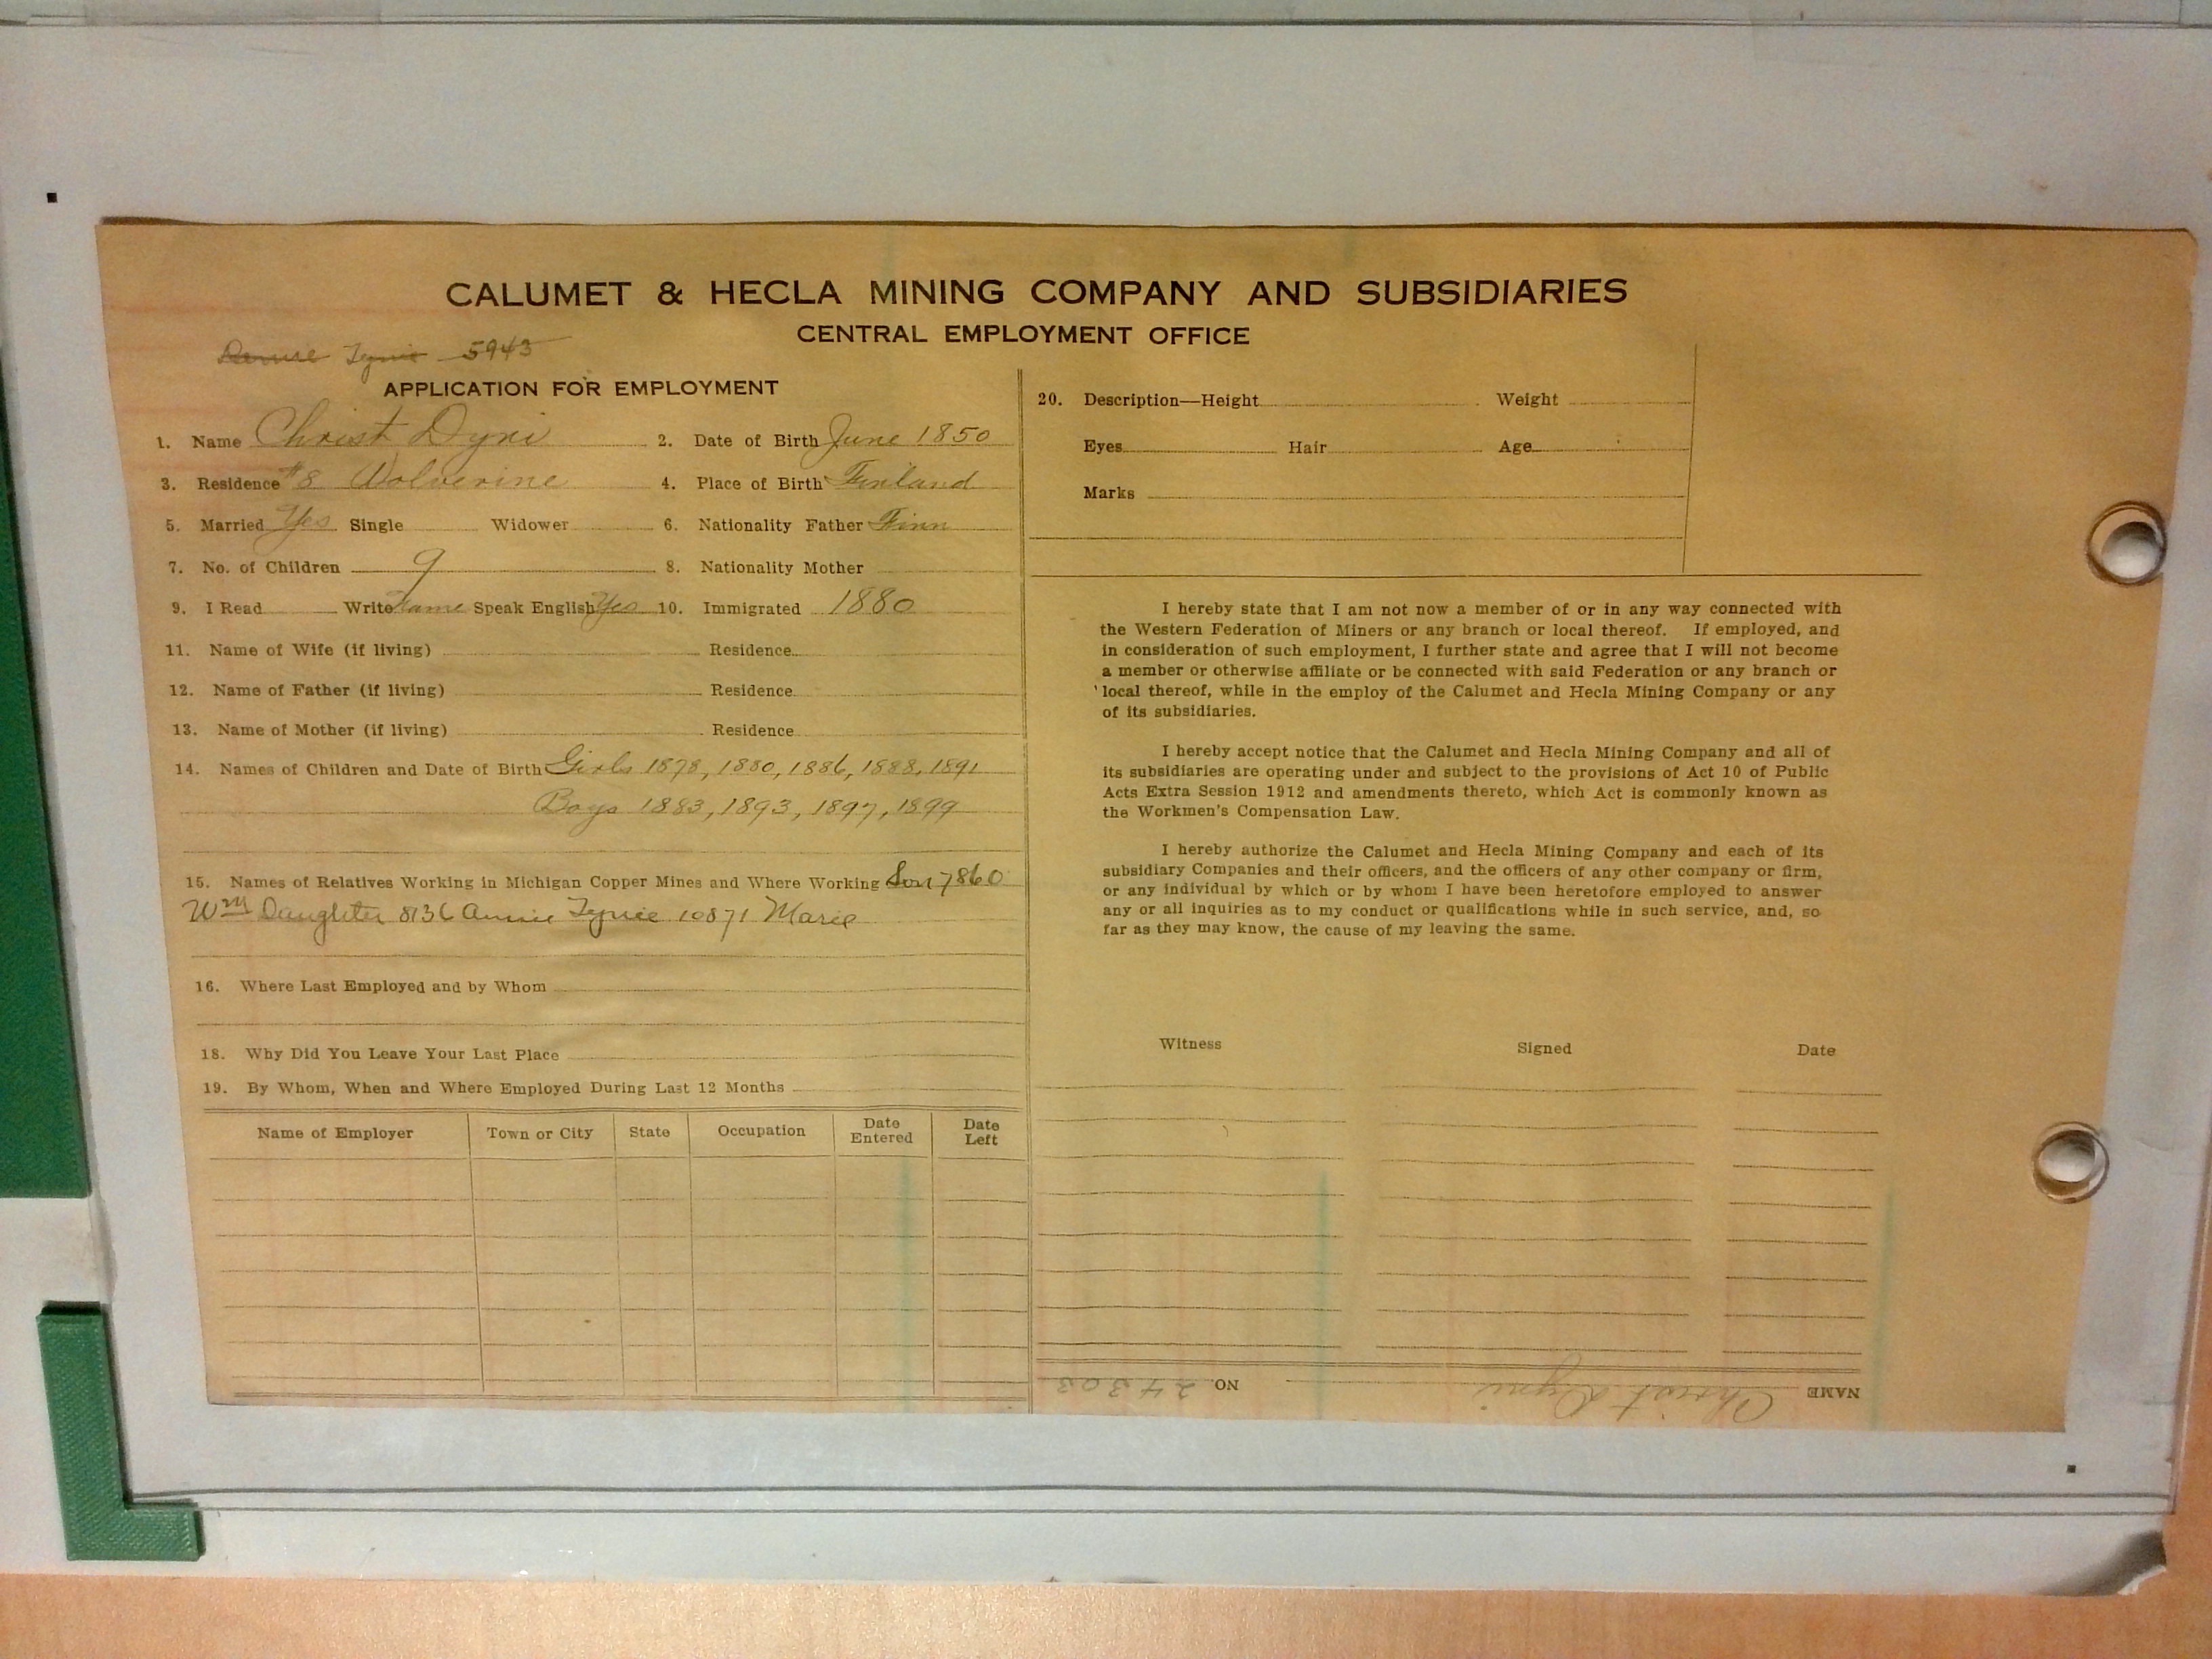 CALUMET & HECLA MINING COMPANY AND SUBSIDIARIES
CENTRAL EMPLOYMENT OFFICE
5943
APPLICATION FOR EMPLOYMENT
1. Name Christ Dyni 2. Date of Birth June 1850
3. Residence #8 Wolverine 4. Place of Birth Finland
5. Married Yes Single Widower 6. Nationality Father Finn
7. No. of Children 9 8. Nationality Mother
9. I Read Write name Speak English Yes 10. Immigrated 1880
11. Name of Wife (if living) Residence
12. Name of Father (if living) Residence
13. Name of Mother (if living) Residence
14. Names of Children and Date of Birth Girls 1878, 1880, 1886, 1888, 1891
Boys 1883, 1893, 1897, 1899
15. Names of Relatives Working in Michigan Copper Mines and Where Working Son 7860
Wm Daughter 8136 Annie Tynie 10871 Marie
16. Where Last Employed and by Whom
18. Why Did You Leave Your Last Place
19. By Whom, When and Where Employed During Last 12 Months
Name of Employer Town or City State Occupation Date Entered Date Left
20. Description—Height Weight
Eyes Hair Age
Marks
I hereby state that I am not now a member of or in any way connected with
the Western Federation of Miners or any branch or local thereof. If employed, and
in consideration of such employment, I further state and agree that I will not become
a member or otherwise affiliate or be connected with said Federation or any branch or
local thereof, while in the employ of the Calumet and Hecla Mining Company or any
of its subsidiaries.
I hereby accept notice that the Calumet and Hecla Mining Company and all of
its subsidiaries are operating under and subject to the provisions of Act 10 of Public
Acts Extra Session 1912 and amendments thereto, which Act is commonly known as
the Workmen's Compensation Law.
I hereby authorize the Calumet and Hecla Mining Company and each of its
subsidiary Companies and their officers, and the officers of any other company or firm,
or any individual by which or by whom I have been heretofore employed to answer
any or all inquiries as to my conduct or qualifications while in such service, and, so
far as they may know, the cause of my leaving the same.
Witness Signed Date
NAME Christ Dyni NO. 24303